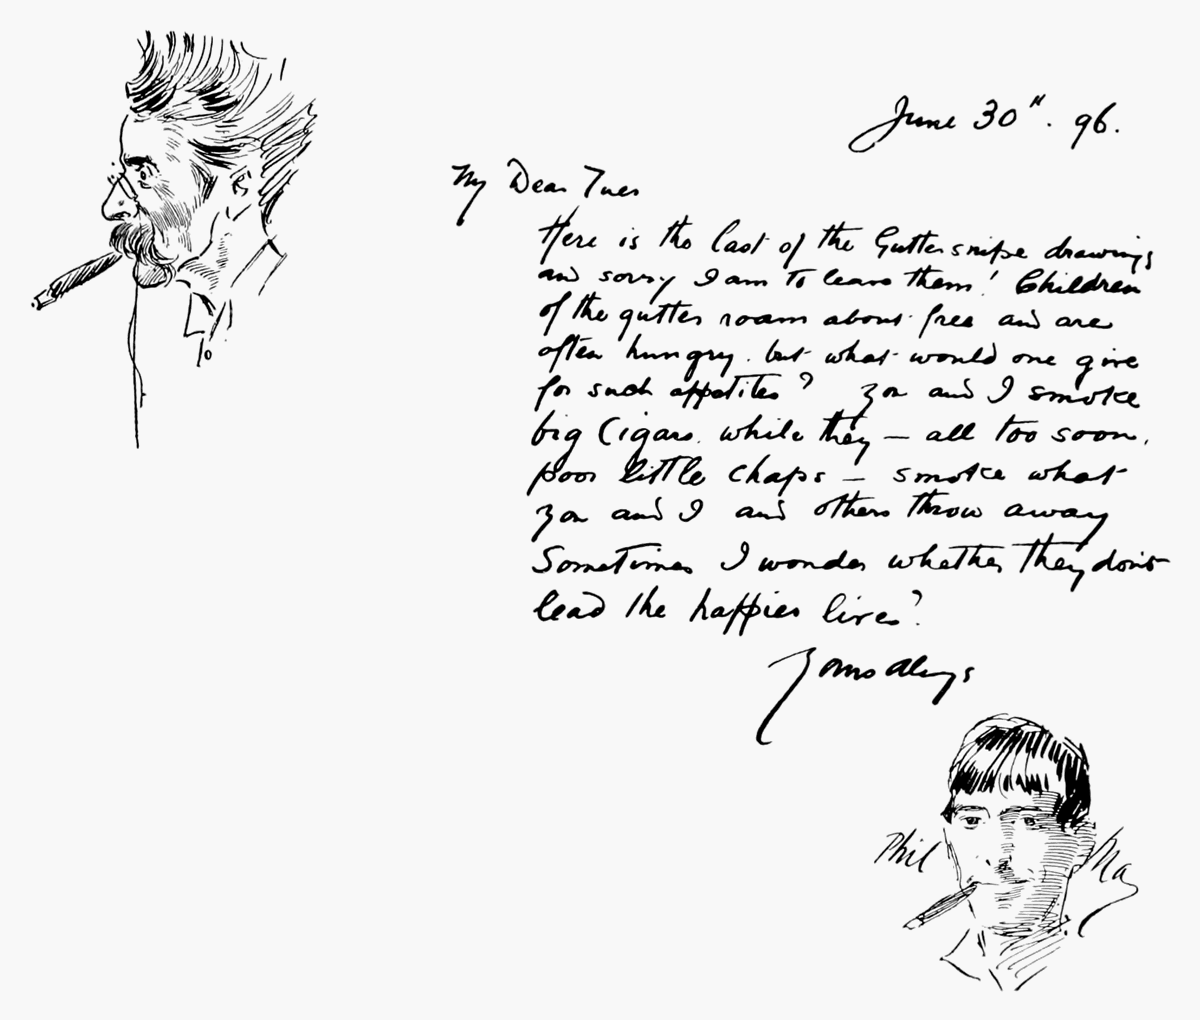 June 30". 96.
My Dear Tuer
Here is the last of the Guttersnipe drawings
and sorry I am to leave them! Children
of the gutter roam about free and are
often hungry. but what would one give
for such appetites? You and I smoke
big Cigars. while they — all too soon,
poor little chaps — smoke what
you and I and others throw away
Sometimes I wonder whether they dont
lead the happier lives?
Yours always
Phil May